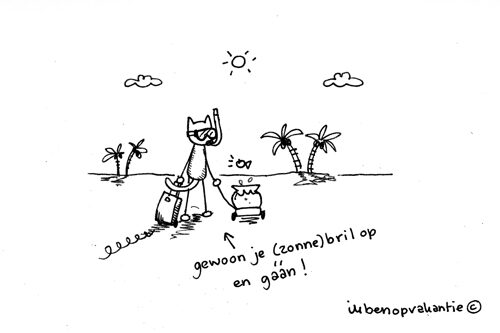 gewoon je (zonne)bril op
en gáán!
ikbenopvakantie ©